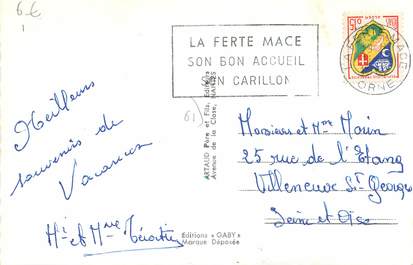 6 €
1
LA FERTE MACE
SON BON ACCUEIL
SON CARILLON
LA FERTE MACE
ORNE
61
Meilleurs
souvenirs de
Vacances
Mr et Mme
ARTAUD Père et Fils, Editeurs
Avenue de la Close, NANTES
Editions « GABY »
Marque Déposée
Monsieur et Mme Morin
25 rue de l'Etang
Villeneuve St Georges
Seine et Oise